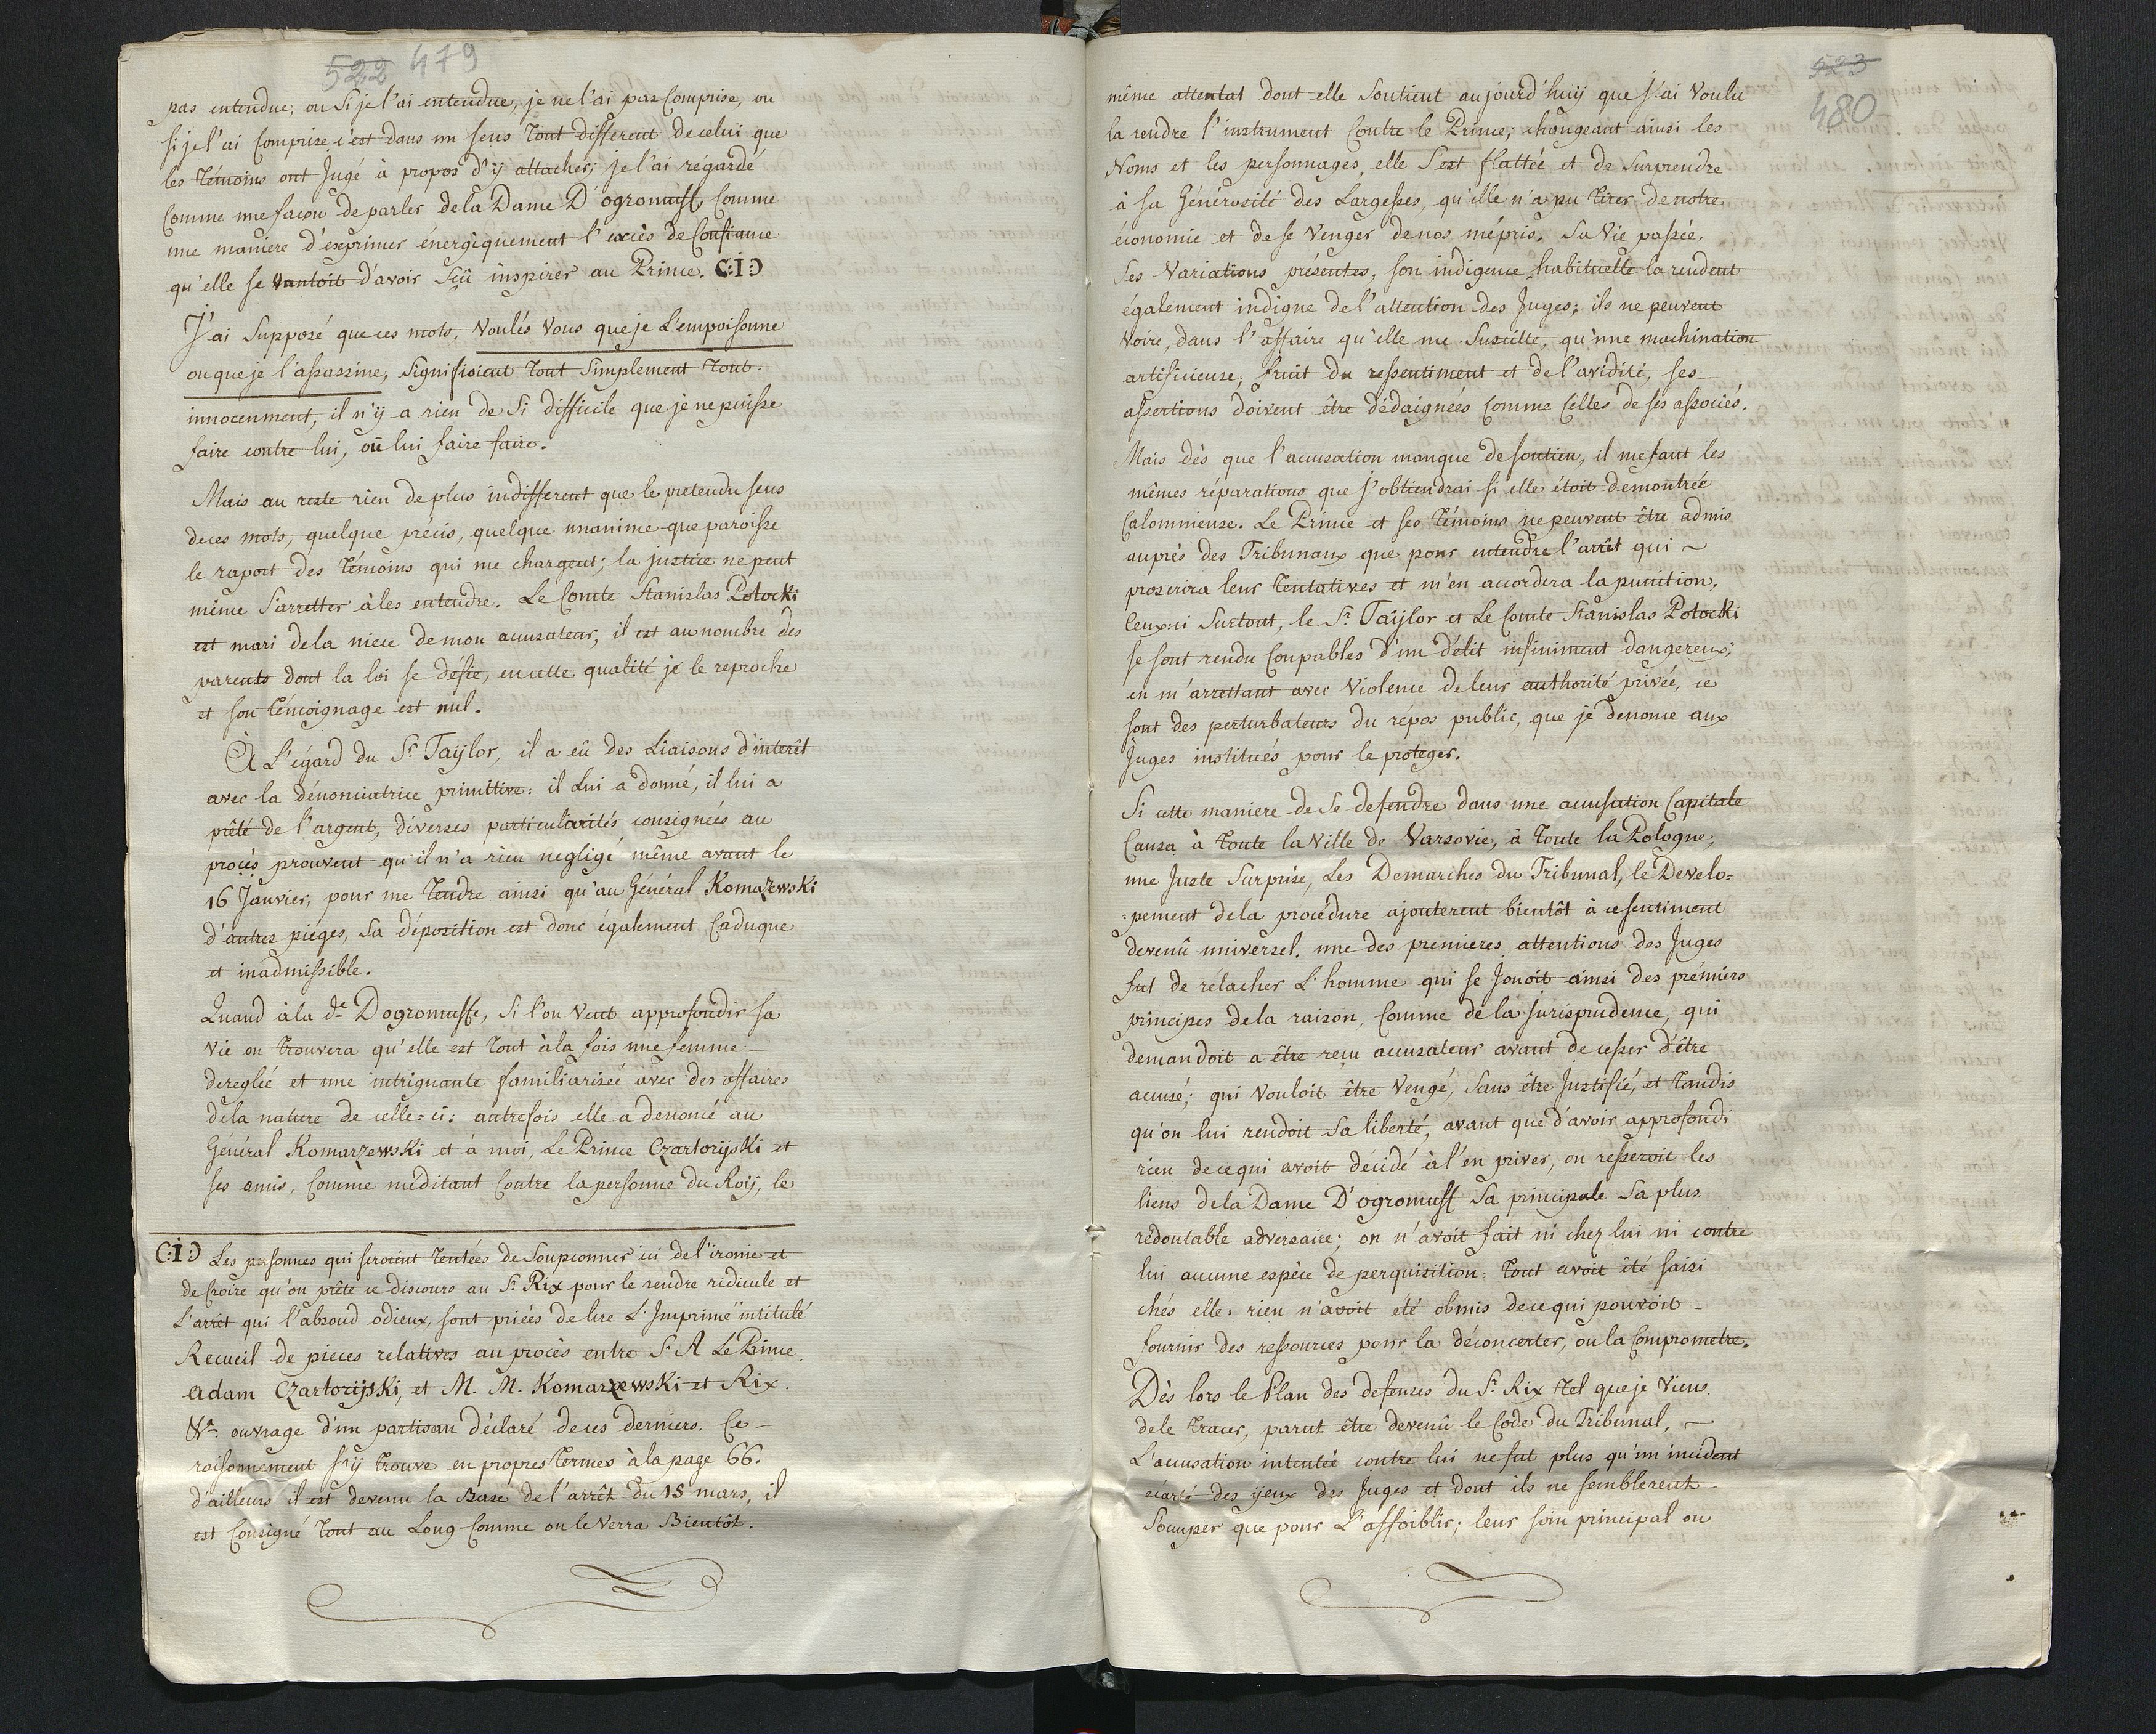 522 479
pas entendue; ou Si je l'ai entendue, je ne l'ai pas Comprise, ou
si je l'ai Comprise c'est dans un sens tout different de celui que
les témoins ont Jugé à propos d'ÿ attacher; je l'ai régardé
Comme une façon de parler de la Dame D'ogromuss Comme
une maniere d'exprimer énergiquement l'excès de Confiance
qu'elle se vantoit d'avoir Sçû inspirer au Prince. (:1:)
J'ai Supposé que ces mots, Voulés Vous que je L'empoisonne
ou que je l'assassine, Signifioient tout Simplement tout
innocenment, il n'ÿ a rien de Si difficile que je ne puisse
faire contre lui, où lui faire faire.
Mais au reste rien de plus indifferent que le pretendu sens
de ces mots, quelque précis, quelque unanime que paroisse
le raport des témoins qui me chargent; la justice ne peut
même S'arretter à les entendre. Le Comte Stanislas Potocki
est mari de la niece de mon accusateur, il est au nombre des
parents dont la loi se défie, en cette qualité je le reproche
et son témoignage est nul.
À L'égard du Sr. Taÿlor, il a eû des Liaisons d'interêt
avec la dénonciatrice primitive: il Lui a donné, il lui a
prêté de l'argent, diverses particularités consignées au
procès prouvent qu'il n'a rien negligé même avant le
16 Janvier, pour me tendre ainsi qu'au Général Komazewski
d'autres pièges, Sa déposition est donc également Caduque
et inadmissible.
Quand à la de. Dogromusse, Si l'on Veut approfondir sa
Vie on trouvera qu'elle est tout à la fois une femme
dereglée et une intriguante familiarisée avec des affaires
de la nature de celle=ci: autrefois elle a denoncé au
Général Komarzewski et à moi, Le Prince Czartorijski et
ses amis, Comme méditant Contre la personne du Roij, le
(:1:) Les personnes qui seroient tentées de Soupconner ici de l'ironie et
de Croire qu'on prête ce discours au Sr. Rix pour le rendre ridicule et
L'arrêt qui l'absoud odieux, sont priées de lire L'Imprimé intitulé
Recueil de pieces relatives au procès entre S. A Le Prince
Adam Czartorijski, et M. M. Komarzewski et Rix.
ouvrage d'un partisan déclaré de ces derniers. Ce
raisonnement s'ÿ trouve en propres termes à la page 66.
d'ailleurs il est devenu la Base de l'arrêt du 15 mars, il
est Consigné tout au Long Comme on le Verra Bientôt.
523
480
même attentat dont elle Soutient aujourd'huij que J'ai Voulu
la rendre l'instrument Contre le Prince; changeant ainsi les
Noms et les personnages, elle S'est flattée et de Surprendre
à sa Générosité des Largesses, qu'elle n'a pu tirer de notre
économie et de se Venger de nos mépris. Sa Vie passée,
Ses Variations présentes, son indigence habituelle la rendent
également indigne de l'attention des Juges; ils ne peuvent
Voire, dans l'affaire qu'elle me Suscitte, qu'une machination
artificieuse, fruit du ressentiment et de l'avidité, ses
assertions doivent être dédaignées Comme Celles de ses associés.
Mais dès que l'accusation manque de soutien, il me faut les
mêmes réparations que J'obtiendrai si elle étoit demontrée
Calomnieuse. Le Prince et ses témoins ne peuvent être admis
auprès des Tribunaux que pour entendre l'arrêt qui ~
proscrira leur tentatives et m'en accordera la punition,
Ceux=ci Surtout, le Sr. Taÿlor et Le Comte Stanislas Potocki
se sont rendu Coupables d'un délit infiniment dangereux;
en m'arrettant avec Violence de leur authorité privée, ce
sont des perturbateurs du répos public, que je denonce aux
Juges institués pour le proteger.
Si cette maniere de Se defendre dans une accusation Capitale
Causa à toute la Ville de Varsovie, à toute la Pologne,
une Juste Surprise, Les Demarches du Tribunal, le Develo=
=pement de la procédure ajouterent bientôt à ce sentiment
devenû universel. une des premieres attentions des Juges
fut de rélacher L'homme qui se Jouoit ainsi des prémiers
principes de la raison, Comme de la Jurisprudence, qui
demandoit a être reçu accusateur avant de cesser d'être
accusé; qui Vouloit être Vengé, Sans être Justifié, et tandis
qu'on lui rendoit Sa liberté, avant que d'avoir approfondi
rien de ce qui avoit décidé à l'en priver, on resseroit les
liens de la Dame D'ogromuss Sa principale Sa plus
rédoutable adversaire; on n'avoit fait ni chez lui ni contre
lui aucune espèce de perquisition: tout avoit été saisi
chés elle. rien n'avoit été obmis de ce qui pouvoit
fournir des ressources pour la déconcerter, ou la Comprometre.
Dès lors le Plan des defenses du Sr. Rix tel que je Viens
de le tracer, parut être devenû le Code du Tribunal,
L'accusation intentée contre lui ne fut plus qu'un incident
écarté des ijeux des Juges et dont ils ne semblerent
S'ocuper que pour L'affoiblir; leur soin principal ou